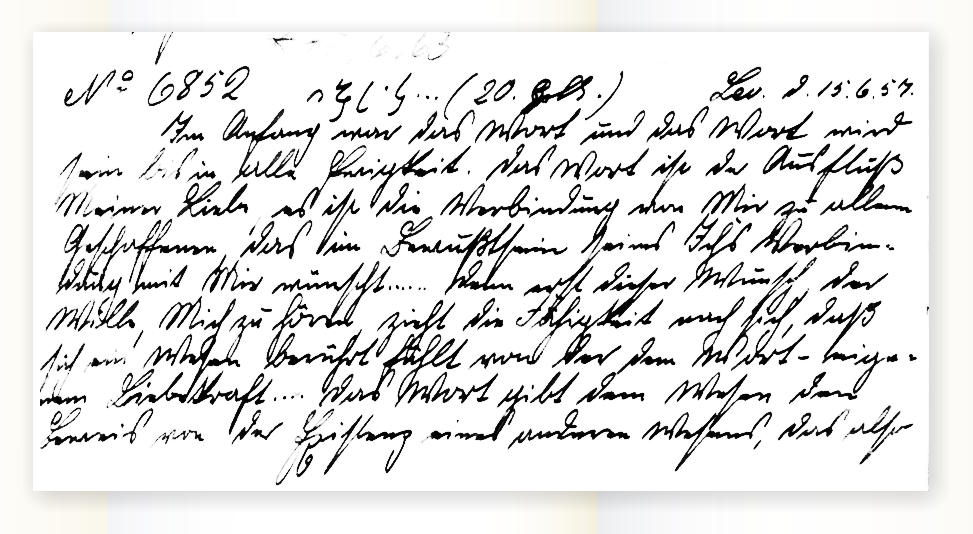 Nº 6852 (20. Lev. d. 15.6.57.
Im Anfang war das Wort und das Wort wird
sein bis in alle Ewigkeit. Das Wort ist der Ausfluß
Meiner Liebe es ist die Verbindung von Mir zu allem
Geschaffenen, das im Bewußtsein seines Ich's Verbin-
dung mit Mir wünscht..... Denn erst dieser Wunsch, der
Wille, Mich zu hören, zieht die Fähigkeit nach sich, daß
sich ein Wesen berührt fühlt von der dem Wort - eige-
nen Liebekraft.... Das Wort gibt dem Wesen den
Beweis von der Existenz eines anderen Wesens, das also